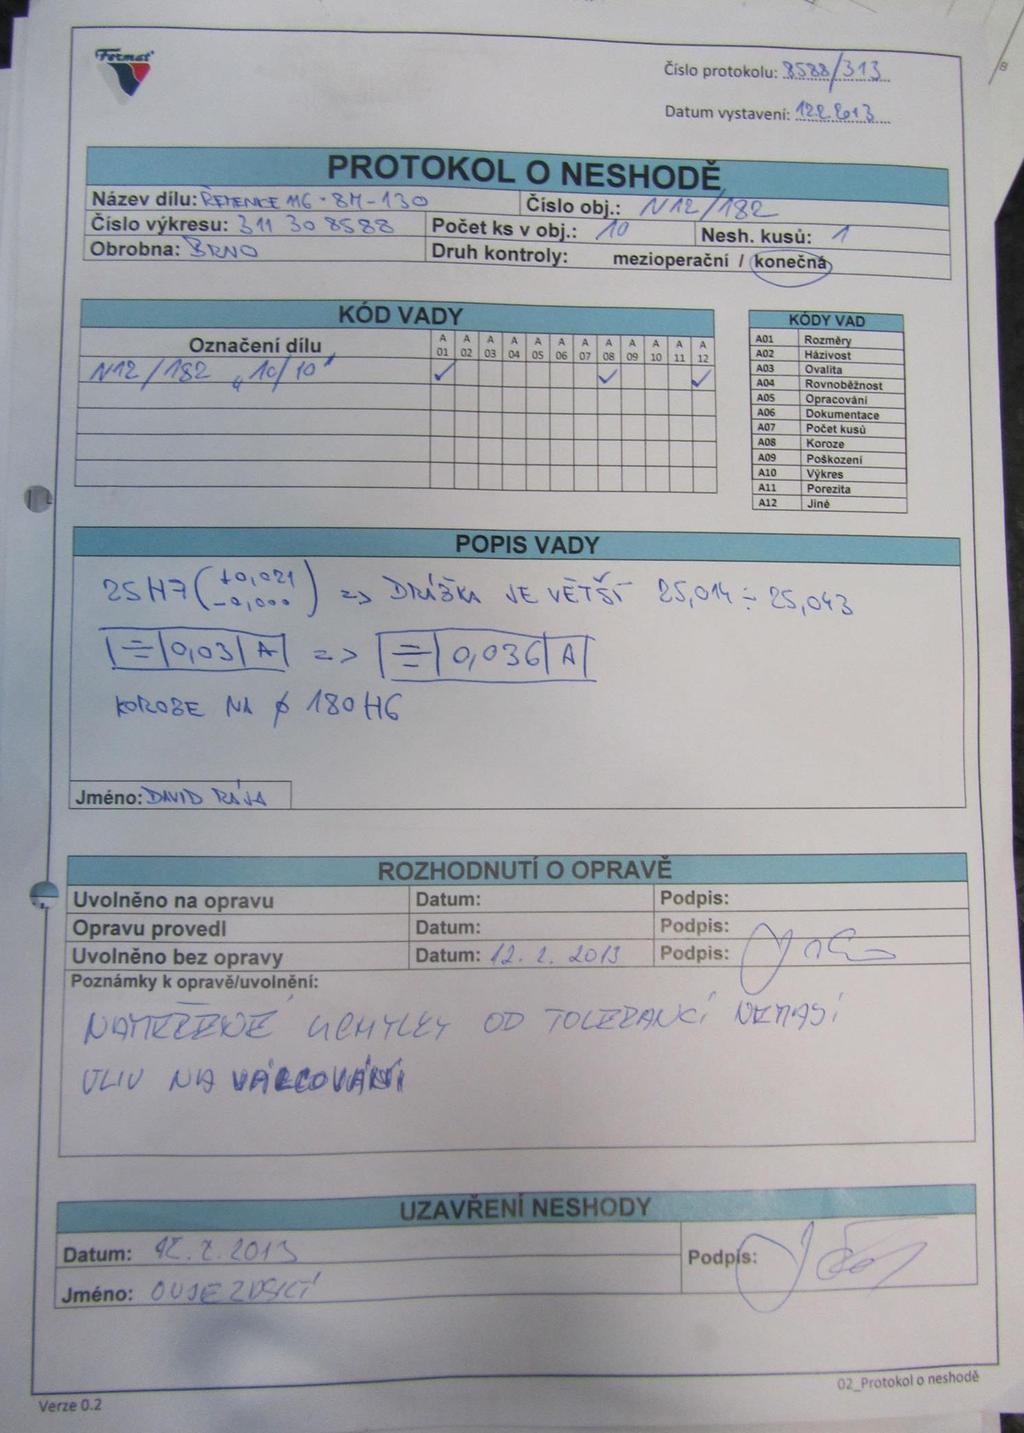 Format
Číslo protokolu: 8588/313
Datum vystavení: 12.2.2013
PROTOKOL O NESHODĚ
Název dílu: ŘEMENICE 116-8M-130 Číslo obj.: N12/182
Číslo výkresu: 311 30 8588 Počet ks v obj.: 10 Nesh. kusů: 1
Obrobna: BRNO Druh kontroly: mezioperační / konečná
KÓD VADY
Označení dílu A 01 A 02 A 03 A 04 A 05 A 06 A 07 A 08 A 09 A 10 A 11 A 12
N12/182 „10/10" ✓ ✓ ✓
KÓDY VAD
A01 Rozměry
A02 Házivost
A03 Ovalita
A04 Rovnoběžnost
A05 Opracování
A06 Dokumentace
A07 Počet kusů
A08 Koroze
A09 Poškození
A10 Výkres
A11 Porezita
A12 Jiné
POPIS VADY
25H7 (+0,021 -0,000) => DRÁŽKA JE VĚTŠÍ 25,014 ÷ 25,043
|=|0,03|A| => |=|0,036|A|
KOROZE NA ø 180H6
Jméno: DAVID RÁJA
ROZHODNUTÍ O OPRAVĚ
Uvolněno na opravu Datum: Podpis:
Opravu provedl Datum: Podpis:
Uvolněno bez opravy Datum: 12. 2. 2013 Podpis:
Poznámky k opravě/uvolnění:
NAMĚŘENÉ UCHYLKY OD TOLERANCÍ NEMAJÍ
VLIV NA VÁLCOVÁNÍ
UZAVŘENÍ NESHODY
Datum: 12. 2. 2013 Podpis:
Jméno:
Verze 0.2
02_Protokol o neshodě